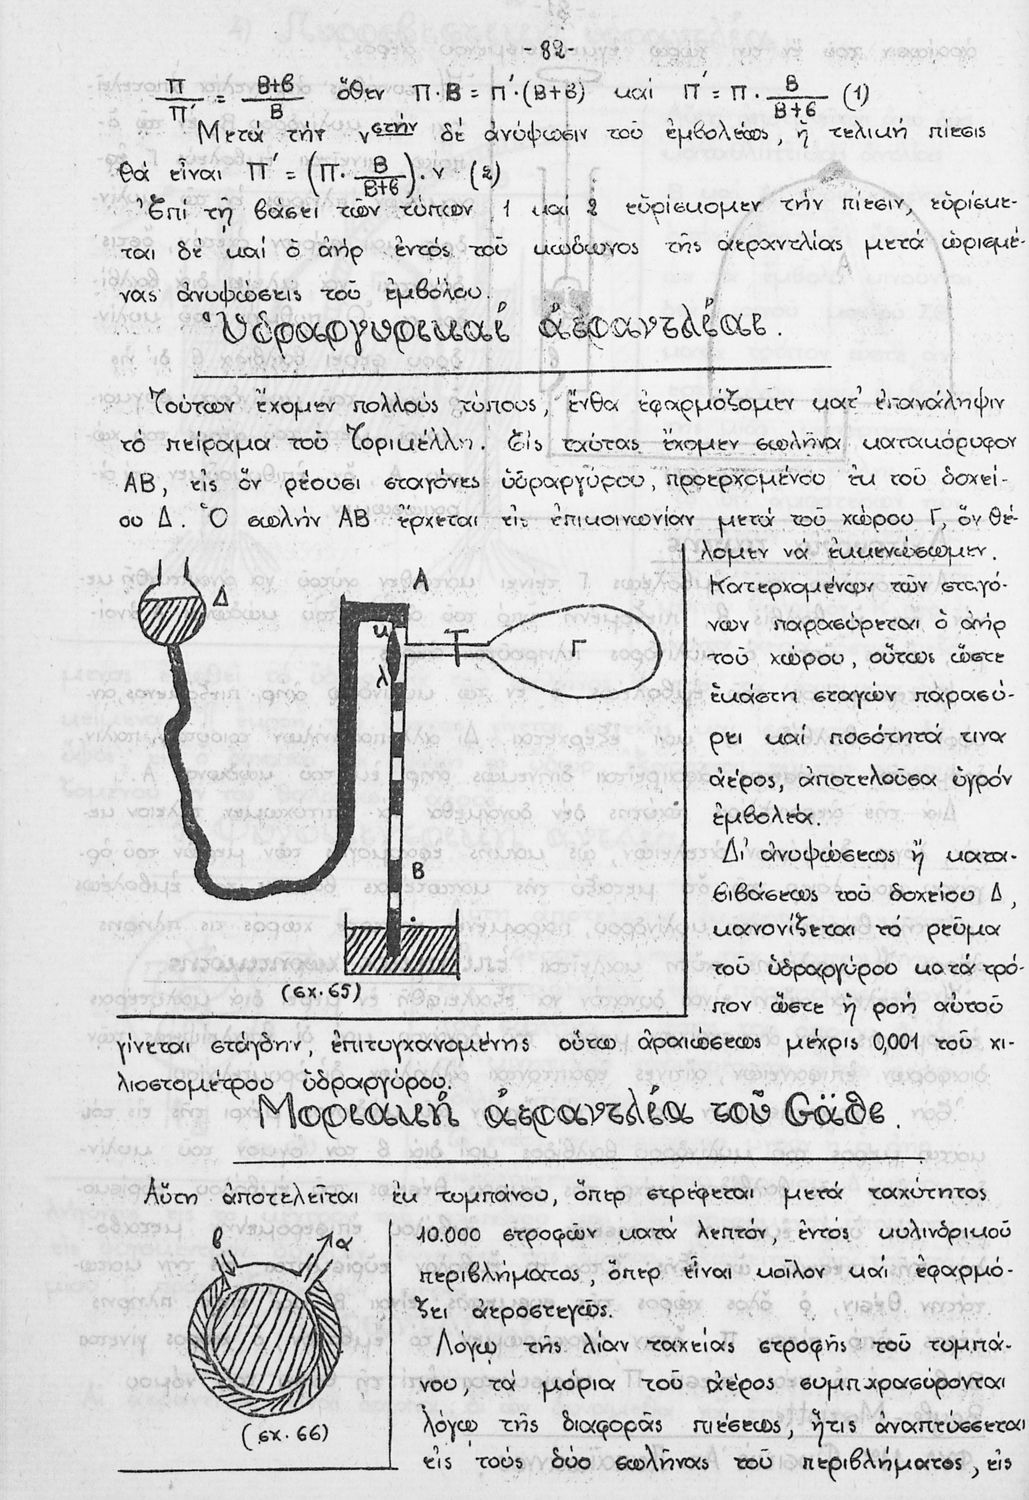 -82-
Π/Π' = Β+β/Β ὅθεν Π·Β = Π'·(Β+β) καί Π' = Π·Β/Β+β (1)
Μετά τήν νστήν δέ ἀνύψωσιν τοῦ ἐμβολέως, ἡ τελική πίεσις
θά εἶναι Π' = (Π·Β/Β+β)·ν (2)
Ἐπί τῇ βάσει τῶν τύπων 1 καί 2 εὑρίσκομεν τήν πίεσιν, εὑρίσκε-
ται δέ καί ὁ ἀήρ ἐντός τοῦ κώδωνος τῆς ἀεραντλίας μετά ὡρισμέ-
νας ἀνυψώσεις τοῦ ἐμβόλου.
Ὑδραργυρικαί ἀεραντλίαι.
Τούτων ἔχομεν πολλούς τύπους, ἔνθα ἐφαρμόζομεν κατ' ἐπανάληψιν
τό πείραμα τοῦ Τορικέλλη. Εἰς ταύτας ἔχομεν σωλῆνα κατακόρυφον
ΑΒ, εἰς ὅν ρέουσι σταγόνες ὑδραργύρου, προερχομένου ἐκ τοῦ δοχεί-
ου Δ. Ὁ σωλήν ΑΒ ἔρχεται εἰς ἐπικοινωνίαν μετά τοῦ χώρου Γ, ὅν θέ-
λομεν νά ἐκκενώσωμεν.
Κατερχομένων τῶν σταγό-
νων παρασύρεται ὁ ἀήρ
τοῦ χώρου, οὕτως ὥστε
ἑκάστη σταγών παρασύ-
ρει καί ποσότητά τινα
ἀέρος, ἀποτελοῦσα ὑγρόν
ἐμβολέα.
Δι' ἀνυψώσεως ἤ κατα-
βιβάσεως τοῦ δοχείου Δ,
κανονίζεται τό ρεῦμα
τοῦ ὑδραργύρου κατά τρό-
πον ὥστε ἡ ροή αὐτοῦ
Δ
Α
κ
λ
Γ
Β
(σχ. 65)
γίνεται στάγδην, ἐπιτυγχανομένης οὕτω ἀραιώσεως μέχρις 0,001 τοῦ χι-
λιοστομέτρου ὑδραργύρου.
Μοριακή ἀεραντλία τοῦ Gäde.
Αὕτη ἀποτελεῖται ἐκ τυμπάνου, ὅπερ στρέφεται μετά ταχύτητος
10.000 στροφῶν κατά λεπτόν, ἐντός κυλινδρικοῦ
περιβλήματος, ὅπερ εἶναι κοῖλον καί ἐφαρμό-
ζει ἀεροστεγῶς.
Λόγῳ τῆς λίαν ταχείας στροφῆς τοῦ τυμπά-
νου, τά μόρια τοῦ ἀέρος συμπαρασύρονται
λόγῳ τῆς διαφορᾶς πιέσεως, ἥτις ἀναπτύσσεται
εἰς τούς δύο σωλῆνας τοῦ περιβλήματος, εἰς
β
α
(σχ. 66)